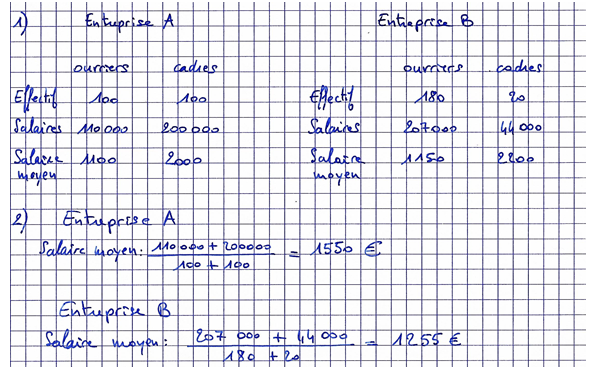 1) Entreprise A Entreprise B
ouvriers cadres ouvriers cadres
Effectif 100 100 Effectif 180 20
Salaires 110 000 200 000 Salaires 207 000 44 000
Salaire moyen 1100 2000 Salaire moyen 1150 2200
2) Entreprise A
Salaire moyen: 110 000 + 200000 / 100 + 100 = 1550 €
Entreprise B
Salaire moyen: 207 000 + 44 000 / 180 + 20 = 1255 €